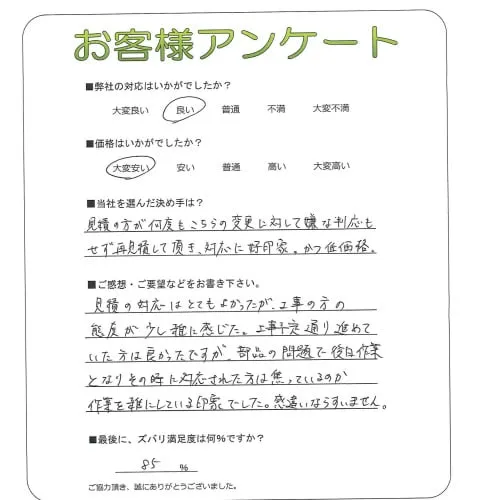 お客様アンケート
■弊社の対応はいかがでしたか？
大変良い 良い 普通 不満 大変不満
■価格はいかがでしたか？
大変安い 安い 普通 高い 大変高い
■当社を選んだ決め手は？
見積の方が何度もこちらの変更に対して嫌な判応も
せず再見積して頂き、対応に好印家。かつ低価格。
■ご感想・ご要望などをお書き下さい。
見積の対応はとてもよかったが、工事の方の
態度が少し雑に感じた。工事予定通り進めて
いた方は良かったですが、部品の問題で後日作業
となりその時に対応された方は焦っているのか
作業を雑にしている印象でした。感違いならすいません。
■最後に、ズバリ満足度は何%ですか？
85 %
ご協力頂き、誠にありがとうございました。